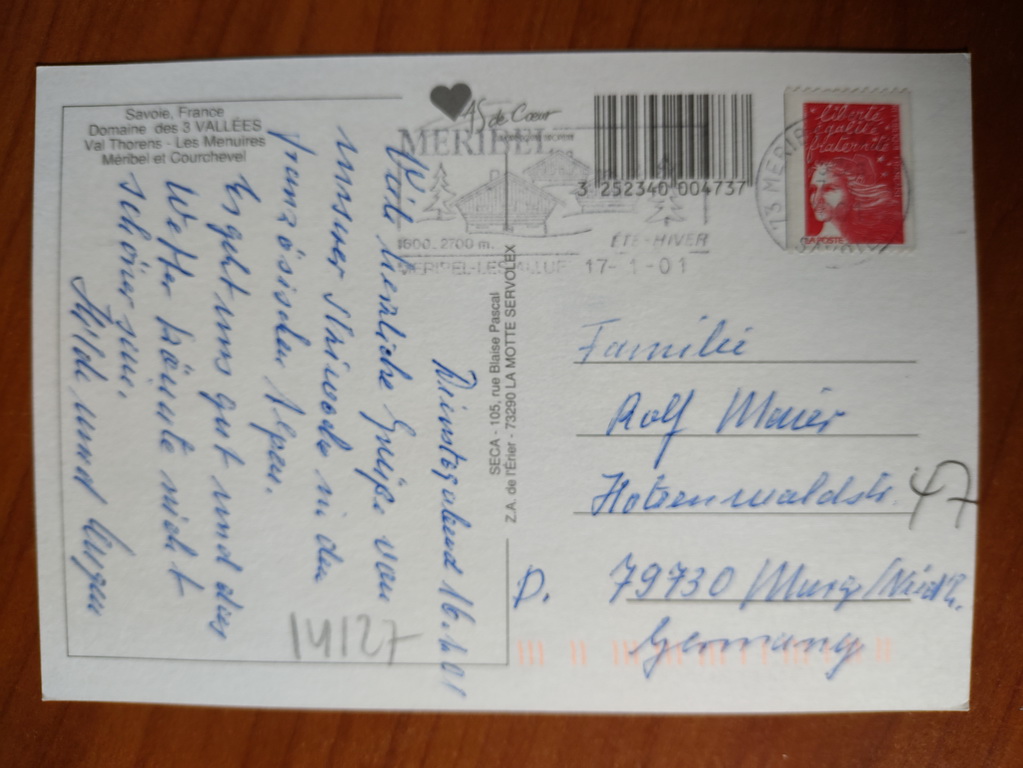 Savoie, France
Domaine des 3 VALLÉES
Val Thorens - Les Menuires
Méribel et Courchevel
Dienstagabend 16.1.01
Viele herzliche Grüße von
unserer Skiwoche in den
französischen Alpen.
Es geht uns gut und das
Wetter könnte nicht
schöner sein.
Hilde und Eugen
14127
SECA - 105, rue Blaise Pascal
Z.A. de l'Érier - 73290 LA MOTTE SERVOLEX
de Cœur
MERIBEL
1600. 2700 m.
ÉTÉ-HIVER
MERIBEL-LES 17-1-01
3 252340 004737
73 MERIB
Liberté
égalité
fraternité
LA POSTE
Familie
Rolf Maier
Hotzenwaldstr. 47
D. 79730 Murg/Niedh.
Germany